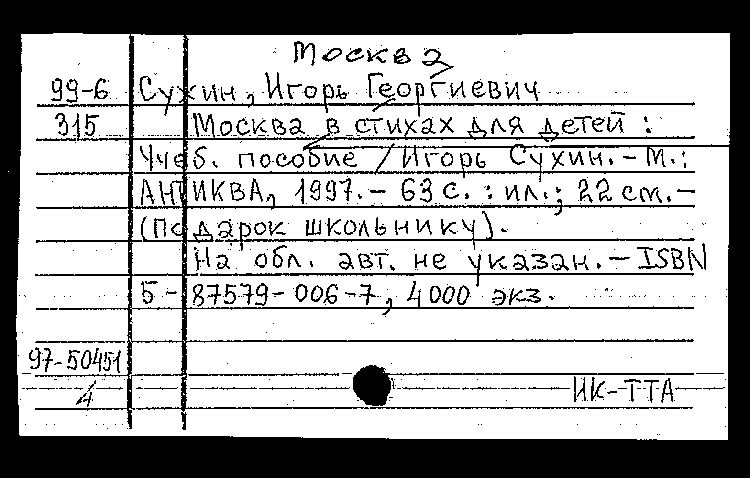 Москва
99-6 Сухин, Игорь Георгиевич
315 Москва в стихах для детей :
Учеб. пособие / Игорь Сухин. - М. :
АНТИКВА, 1997. - 63 с. : ил. ; 22 см. -
(Подарок школьнику).
На обл. авт. не указан. - ISBN
5-87579-006-7, 4000 экз.
97-50451
4 ИК-ТТА